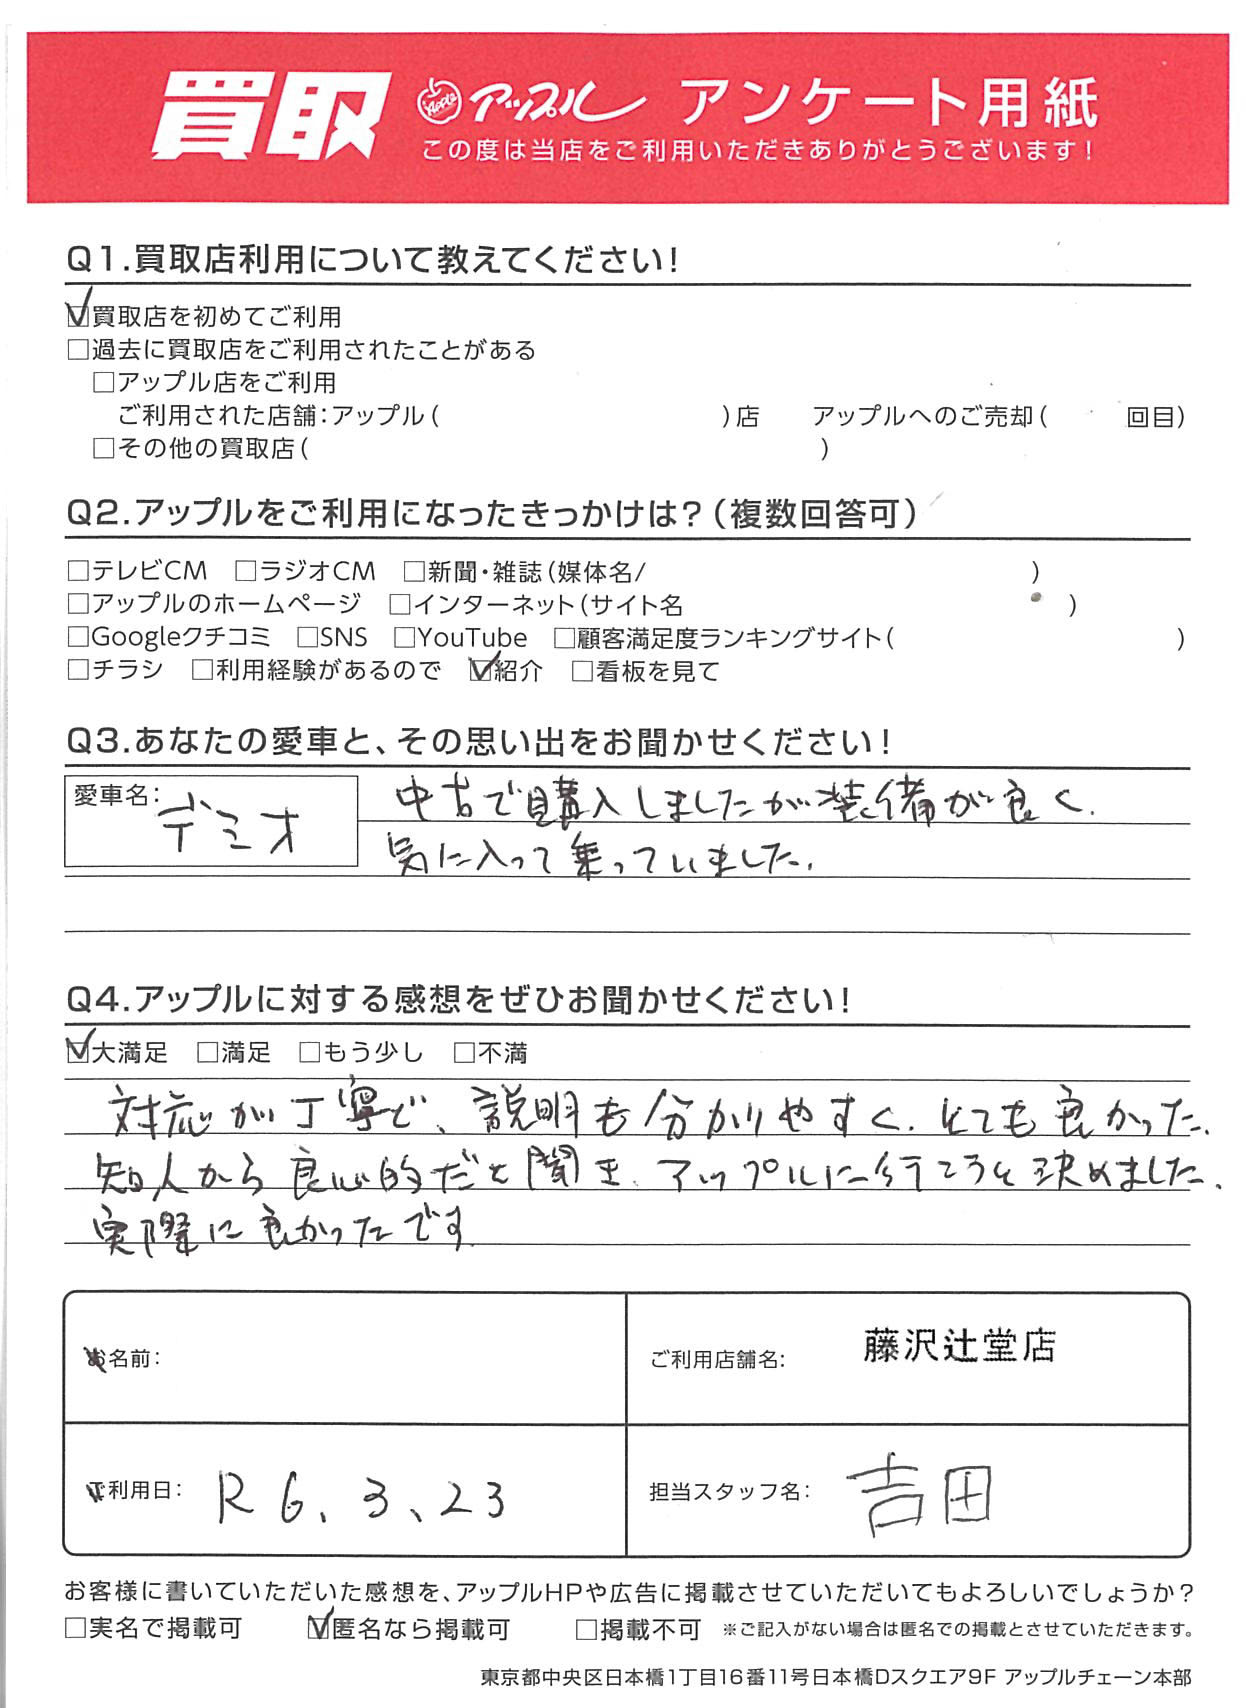 買取 Apple アップル アンケート用紙
この度は当店をご利用いただきありがとうございます!
Q1.買取店利用について教えてください!
☑買取店を初めてご利用
□過去に買取店をご利用されたことがある
□アップル店をご利用
ご利用された店舗:アップル( )店 アップルへのご売却( 回目)
□その他の買取店( )
Q2.アップルをご利用になったきっかけは?(複数回答可)
□テレビCM □ラジオCM □新聞・雑誌(媒体名/ )
□アップルのホームページ □インターネット(サイト名 )
□Googleクチコミ □SNS □YouTube □顧客満足度ランキングサイト( )
□チラシ □利用経験があるので ☑紹介 □看板を見て
Q3.あなたの愛車と、その思い出をお聞かせください!
愛車名:デミオ 中古で購入しましたが装備が良く、
気に入って乗っていました。
Q4.アップルに対する感想をぜひお聞かせください!
☑大満足 □満足 □もう少し □不満
対応が丁寧で、説明も分かりやすく、とても良かった。
知人から良心的だと聞き、アップルに行こうと決めました。
実際に良かったです。
お名前:
ご利用店舗名: 藤沢辻堂店
ご利用日: R6、3、23
担当スタッフ名: 吉田
お客様に書いていただいた感想を、アップルHPや広告に掲載させていただいてもよろしいでしょうか?
□実名で掲載可 ☑匿名なら掲載可 □掲載不可 ※ご記入がない場合は匿名での掲載とさせていただきます。
東京都中央区日本橋1丁目16番11号日本橋Dスクエア9F アップルチェーン本部